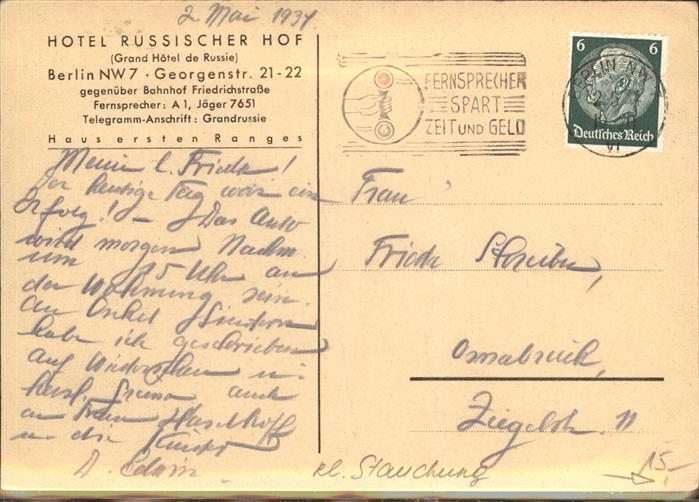 2. Mai 1934.
HOTEL RUSSISCHER HOF
(Grand Hôtel de Russie)
Berlin NW 7 · Georgenstr. 21-22
gegenüber Bahnhof Friedrichstraße
Fernsprecher: A 1, Jäger 7651
Telegramm-Anschrift: Grandrussie
Haus ersten Ranges
Mein l. Friede!
Der heutige Tag war ein
Erfolg! – Das Auto
wird morgen Nachm.
um 15 Uhr an
der Wohnung sein.
An Onkel
habe ich geschrieben
Auf Wiedersehen u.
herzl. Grüsse auch
an Frau Haselhoff
u. die Kinder
D. Edwin
FERNSPRECHER
SPART
ZEIT UND GELD
BERLIN NW
6 6
Deutsches Reich
Frau
Friede Schreiber,
Osnabrück,
Ziegelstr. 11
kl. Stauchung
15.-